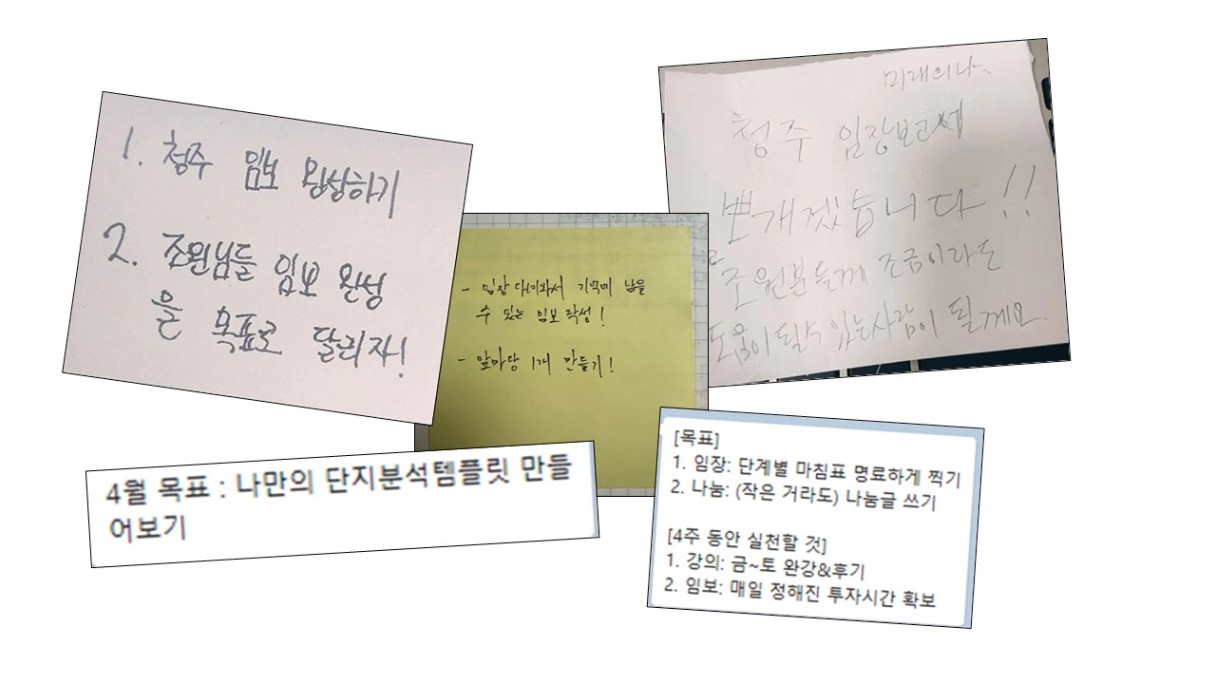 1. 청주 임보 완성하기
2. 조원님들 임보 완성
을 목표로 달리자!
- 임장 다녀와서 기억에 남을
수 있는 임보 작성!
- 앞마당 1개 만들기!
미래의 나
청주 임장보고서
뽀개겠습니다!!
조원분들께 조금이라도
도움이 될 수 있는 사람이 될게요.
4월 목표 : 나만의 단지분석템플릿 만들
어보기
[목표]
1. 임장: 단계별 마침표 명료하게 찍기
2. 나눔: (작은 거라도) 나눔글 쓰기
[4주 동안 실천할 것]
1. 강의: 금~토 완강&후기
2. 임보: 매일 정해진 투자시간 확보